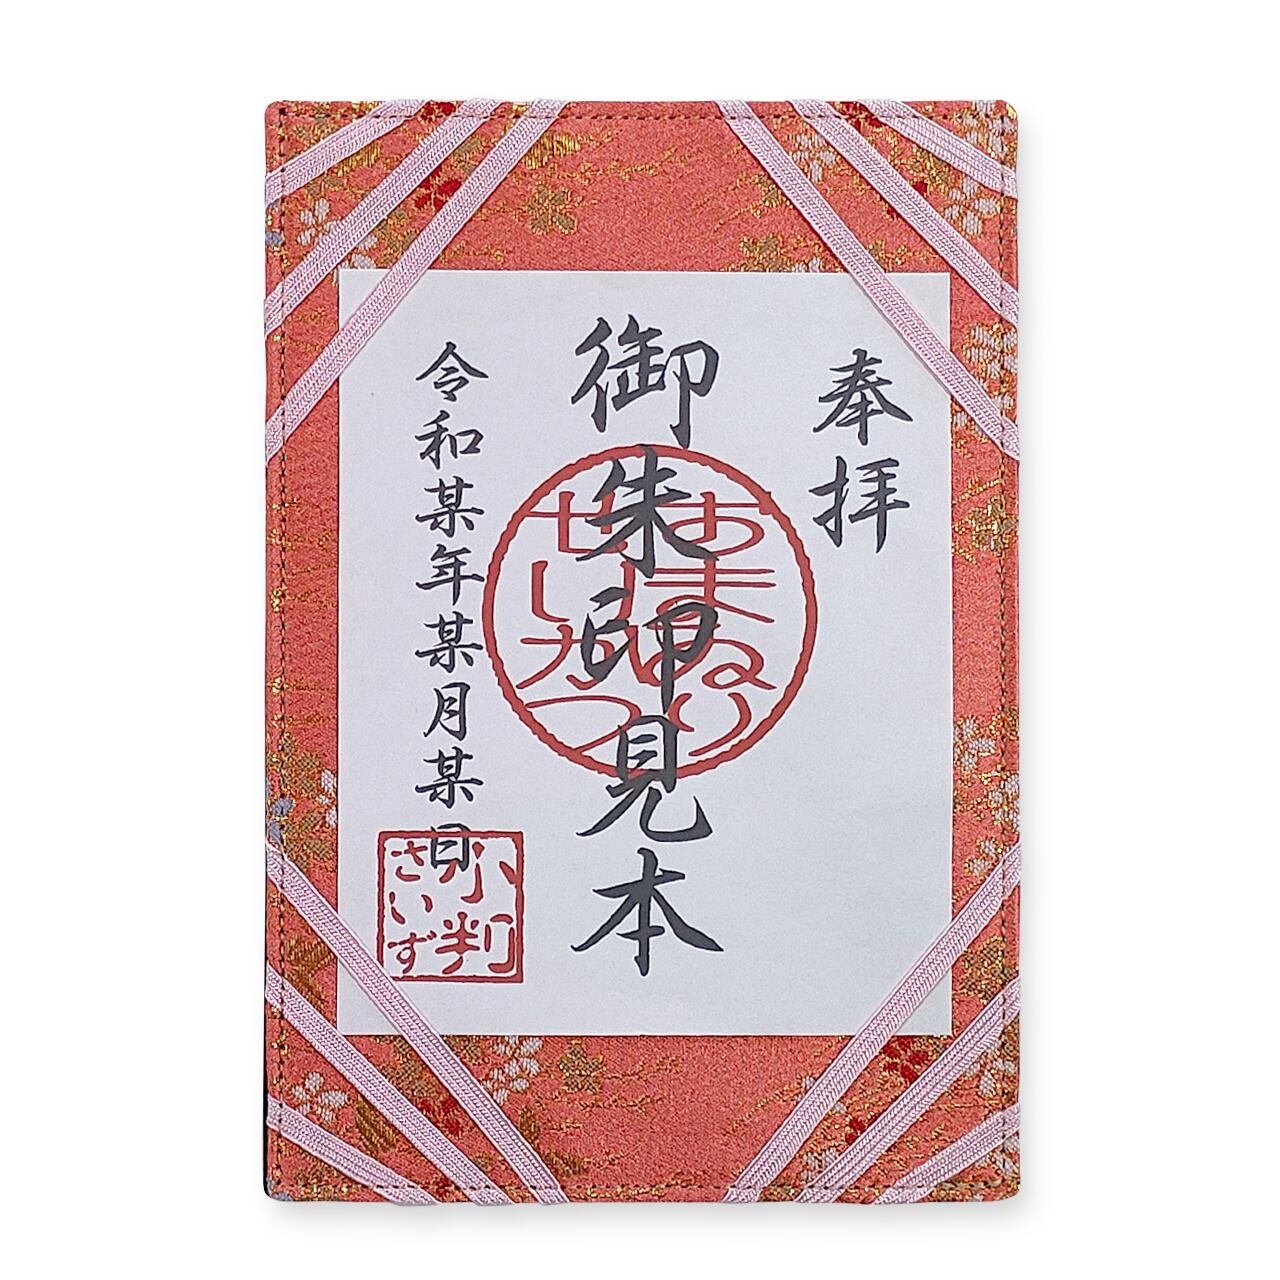 奉拝
御朱印見本
おまゐり
せいかつ
令和某年某月某日
小判
さいず